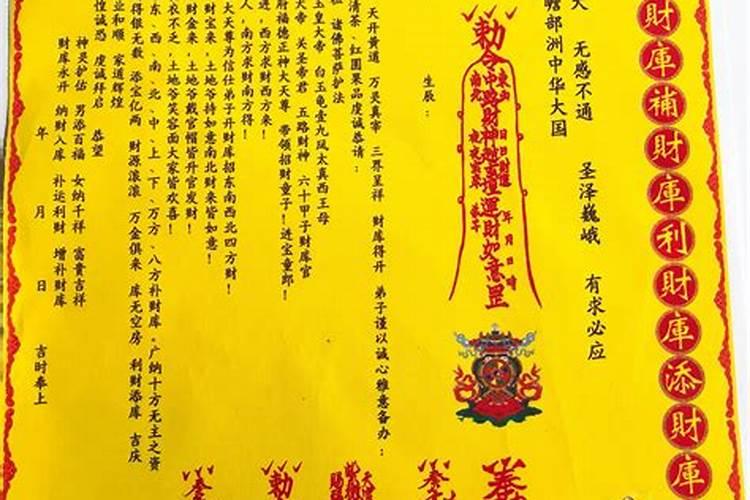 財庫補財庫利財庫添財庫
無感不通　聖泽巍峨　有求必应
瞻部洲中华大国
勅令
中路财神赵玄壇運財如意罡
年　月　日　時
生辰：
天开黄道　万灵真宰　三界呈祥　财库得开　弟子谨以诚心雅意备办：
清茶、红圆果品虔诚恭请：
诸佛菩萨护法
玉皇大帝　白玉龟壹九凤太真西王母
大帝　关圣帝君　五路财神　六十甲子财库官
府福德正神大天尊　带领招财童子！进宝童郎！
大天尊为信仕弟子开财库招东南西北四方财！
进，西方求财西方来！
人，南方求财南方得！
财宝来，土地爷持如意南北财来皆如意！
财金来，土地爷戴官帽皆升官发财！
衣不乏，土地爷笑容面大家皆欢喜！
东、西、南、北、中、上、下、万方、八方补财库。广纳十方无主之资
得银无数　添宝亿两　财源滚滚　万金俱来　库无空房　利财添库　吉庆
业和顺　家道辉煌
惶诚恐　虔诚拜启　恭望
神灵护佑　男添百福　女纳千祥　富贵吉祥
财库永开　纳财入库　补运利财　增补财库
年　月　日　吉时奉上